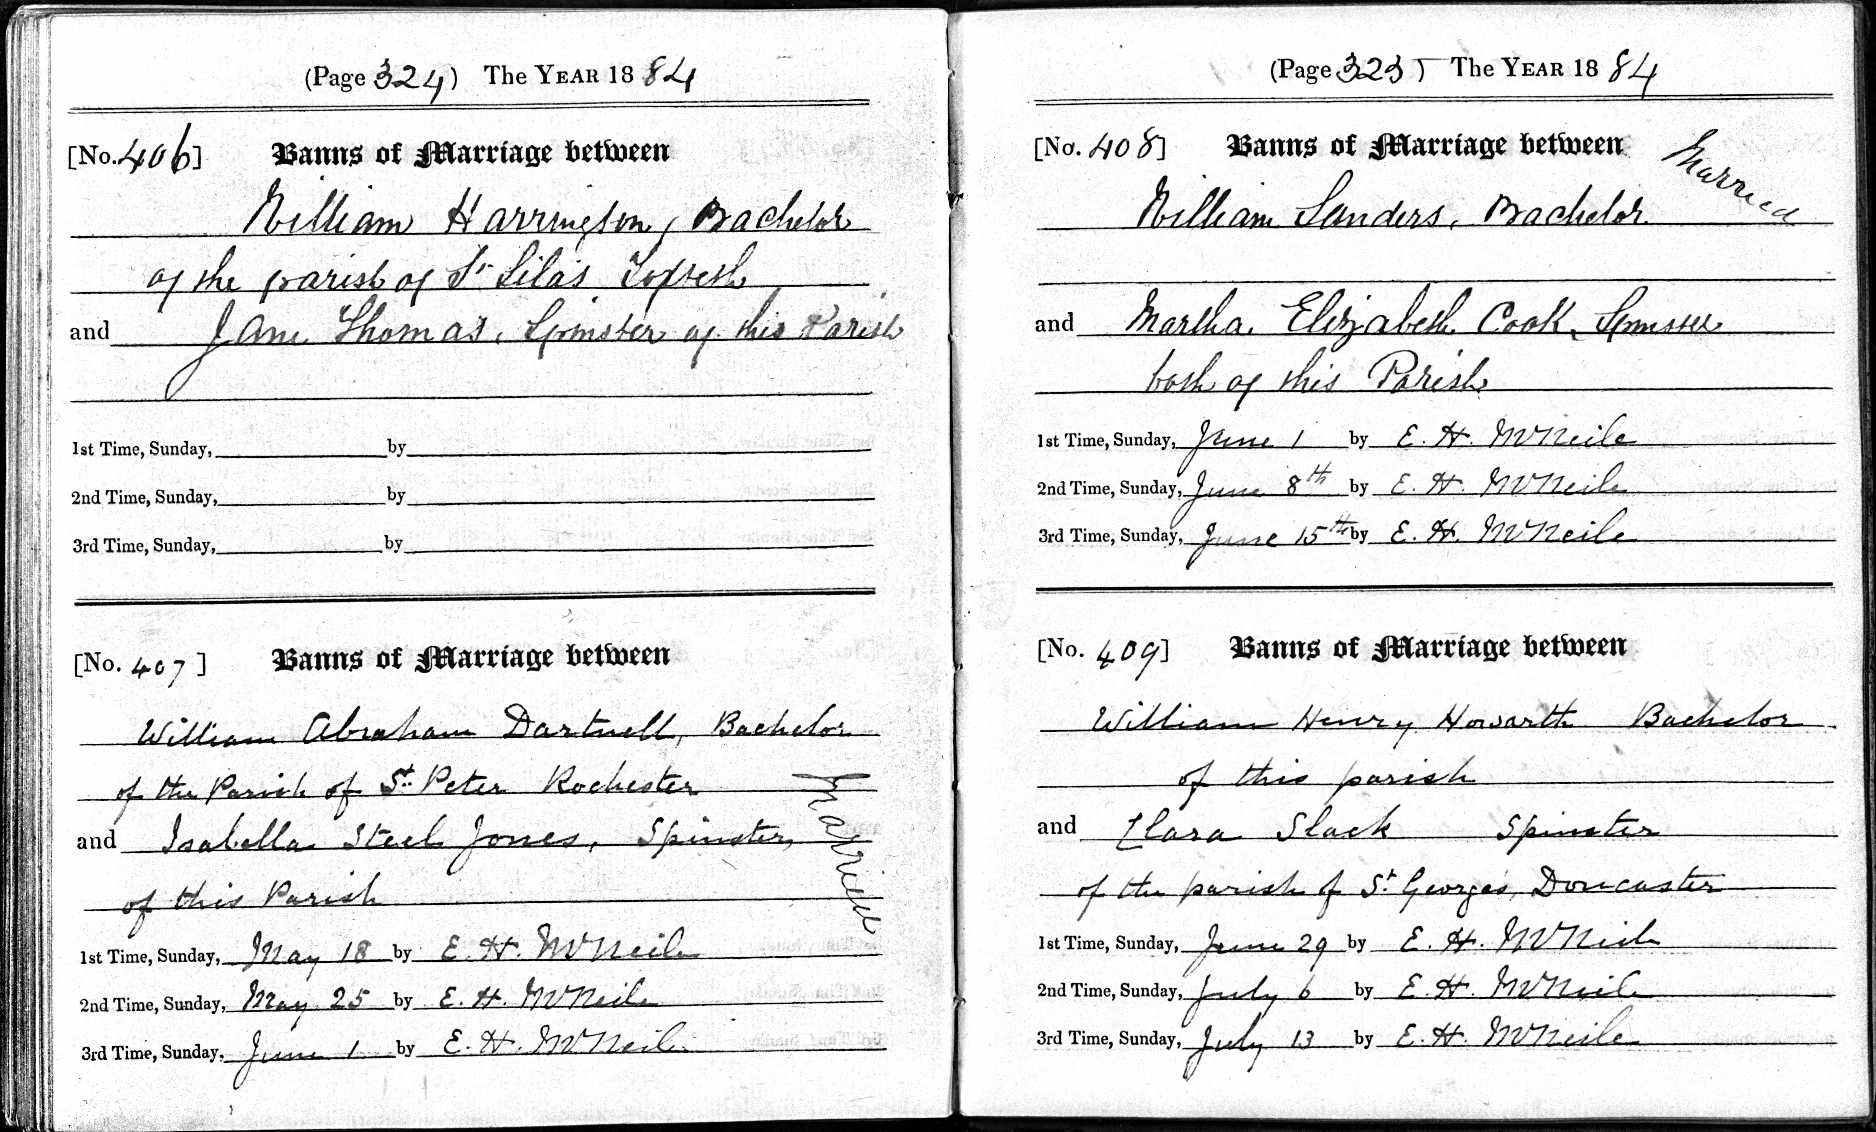 (Page 324) The YEAR 1884
[No. 406] Banns of Marriage between
William Harrington, Bachelor
of the parish of St Silas Toxteth
and Jane Thomas, Spinster of this Parish
1st Time, Sunday, by
2nd Time, Sunday, by
3rd Time, Sunday, by
[No. 407] Banns of Marriage between
William Abraham Dartnell, Bachelor
of the Parish of St. Peter Rochester
and Isabella Steel Jones, Spinster,
of this Parish
Married
1st Time, Sunday, May 18 by E. H. McNeile
2nd Time, Sunday, May 25 by E. H. McNeile
3rd Time, Sunday, June 1 by E. H. McNeile
(Page 325) The YEAR 1884
[No. 408] Banns of Marriage between
Married
William Sanders, Bachelor
and Martha Elizabeth Cook, Spinster
both of this Parish
1st Time, Sunday, June 1 by E. H. McNeile
2nd Time, Sunday, June 8th by E. H. McNeile
3rd Time, Sunday, June 15th by E. H. McNeile
[No. 409] Banns of Marriage between
William Henry Howarth Bachelor
of this parish
and Clara Slack Spinster
of the parish of St George's, Doncaster
1st Time, Sunday, June 29 by E. H. McNeile
2nd Time, Sunday, July 6 by E. H. McNeile
3rd Time, Sunday, July 13 by E. H. McNeile